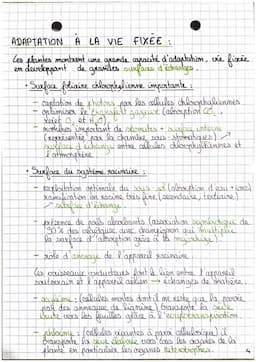 ADAPTATION À LA VIE FIXÉE :
Les plantes montrent une grande capacité d'adaptation, vie fixée
en développant de grandes surfaces d'échanges.
• Surface foliaire chlorophyllienne importante :
- captation de photons par les cellules chlorophylliennes
- optimiser les échanges gazeux (absorption CO₂,
rejet O₂ et H₂O)
- nombres important de stomates + surface interne
(représentée par la chambre sous-stomatique) ↗
surface d'échange entre cellules chlorophylliennes et
l'atmosphère.
• Surface du système racinaire :
- exploitation optimale du sol (absorption d'eau + ions)
ramification en racine très fine (secondaire, tertiaire)
↗ surface d'échange.
- présence de poils absorbants (association symbiotique de
90% des végétaux avec champignon qui multiplie
la surface d'absorption grâce à la mycorhize)
- rôle d'ancrage de l'appareil racinaire
Les vaisseaux conducteurs font le lien entre l'appareil
souterrain et l'appareil aérien → échanges de matière.
- xylème : (cellules mortes dont il ne reste que la paroie
par des anneaux de lignine) transporte la sève
brute vers les feuilles grâce à l'évapotranspiration.
- phloème : (cellules vivantes à paroi cellulosique) il
transporte la sève élaborée vers tous les organes de la
plante en particulier les organes hétérotrophes.
4